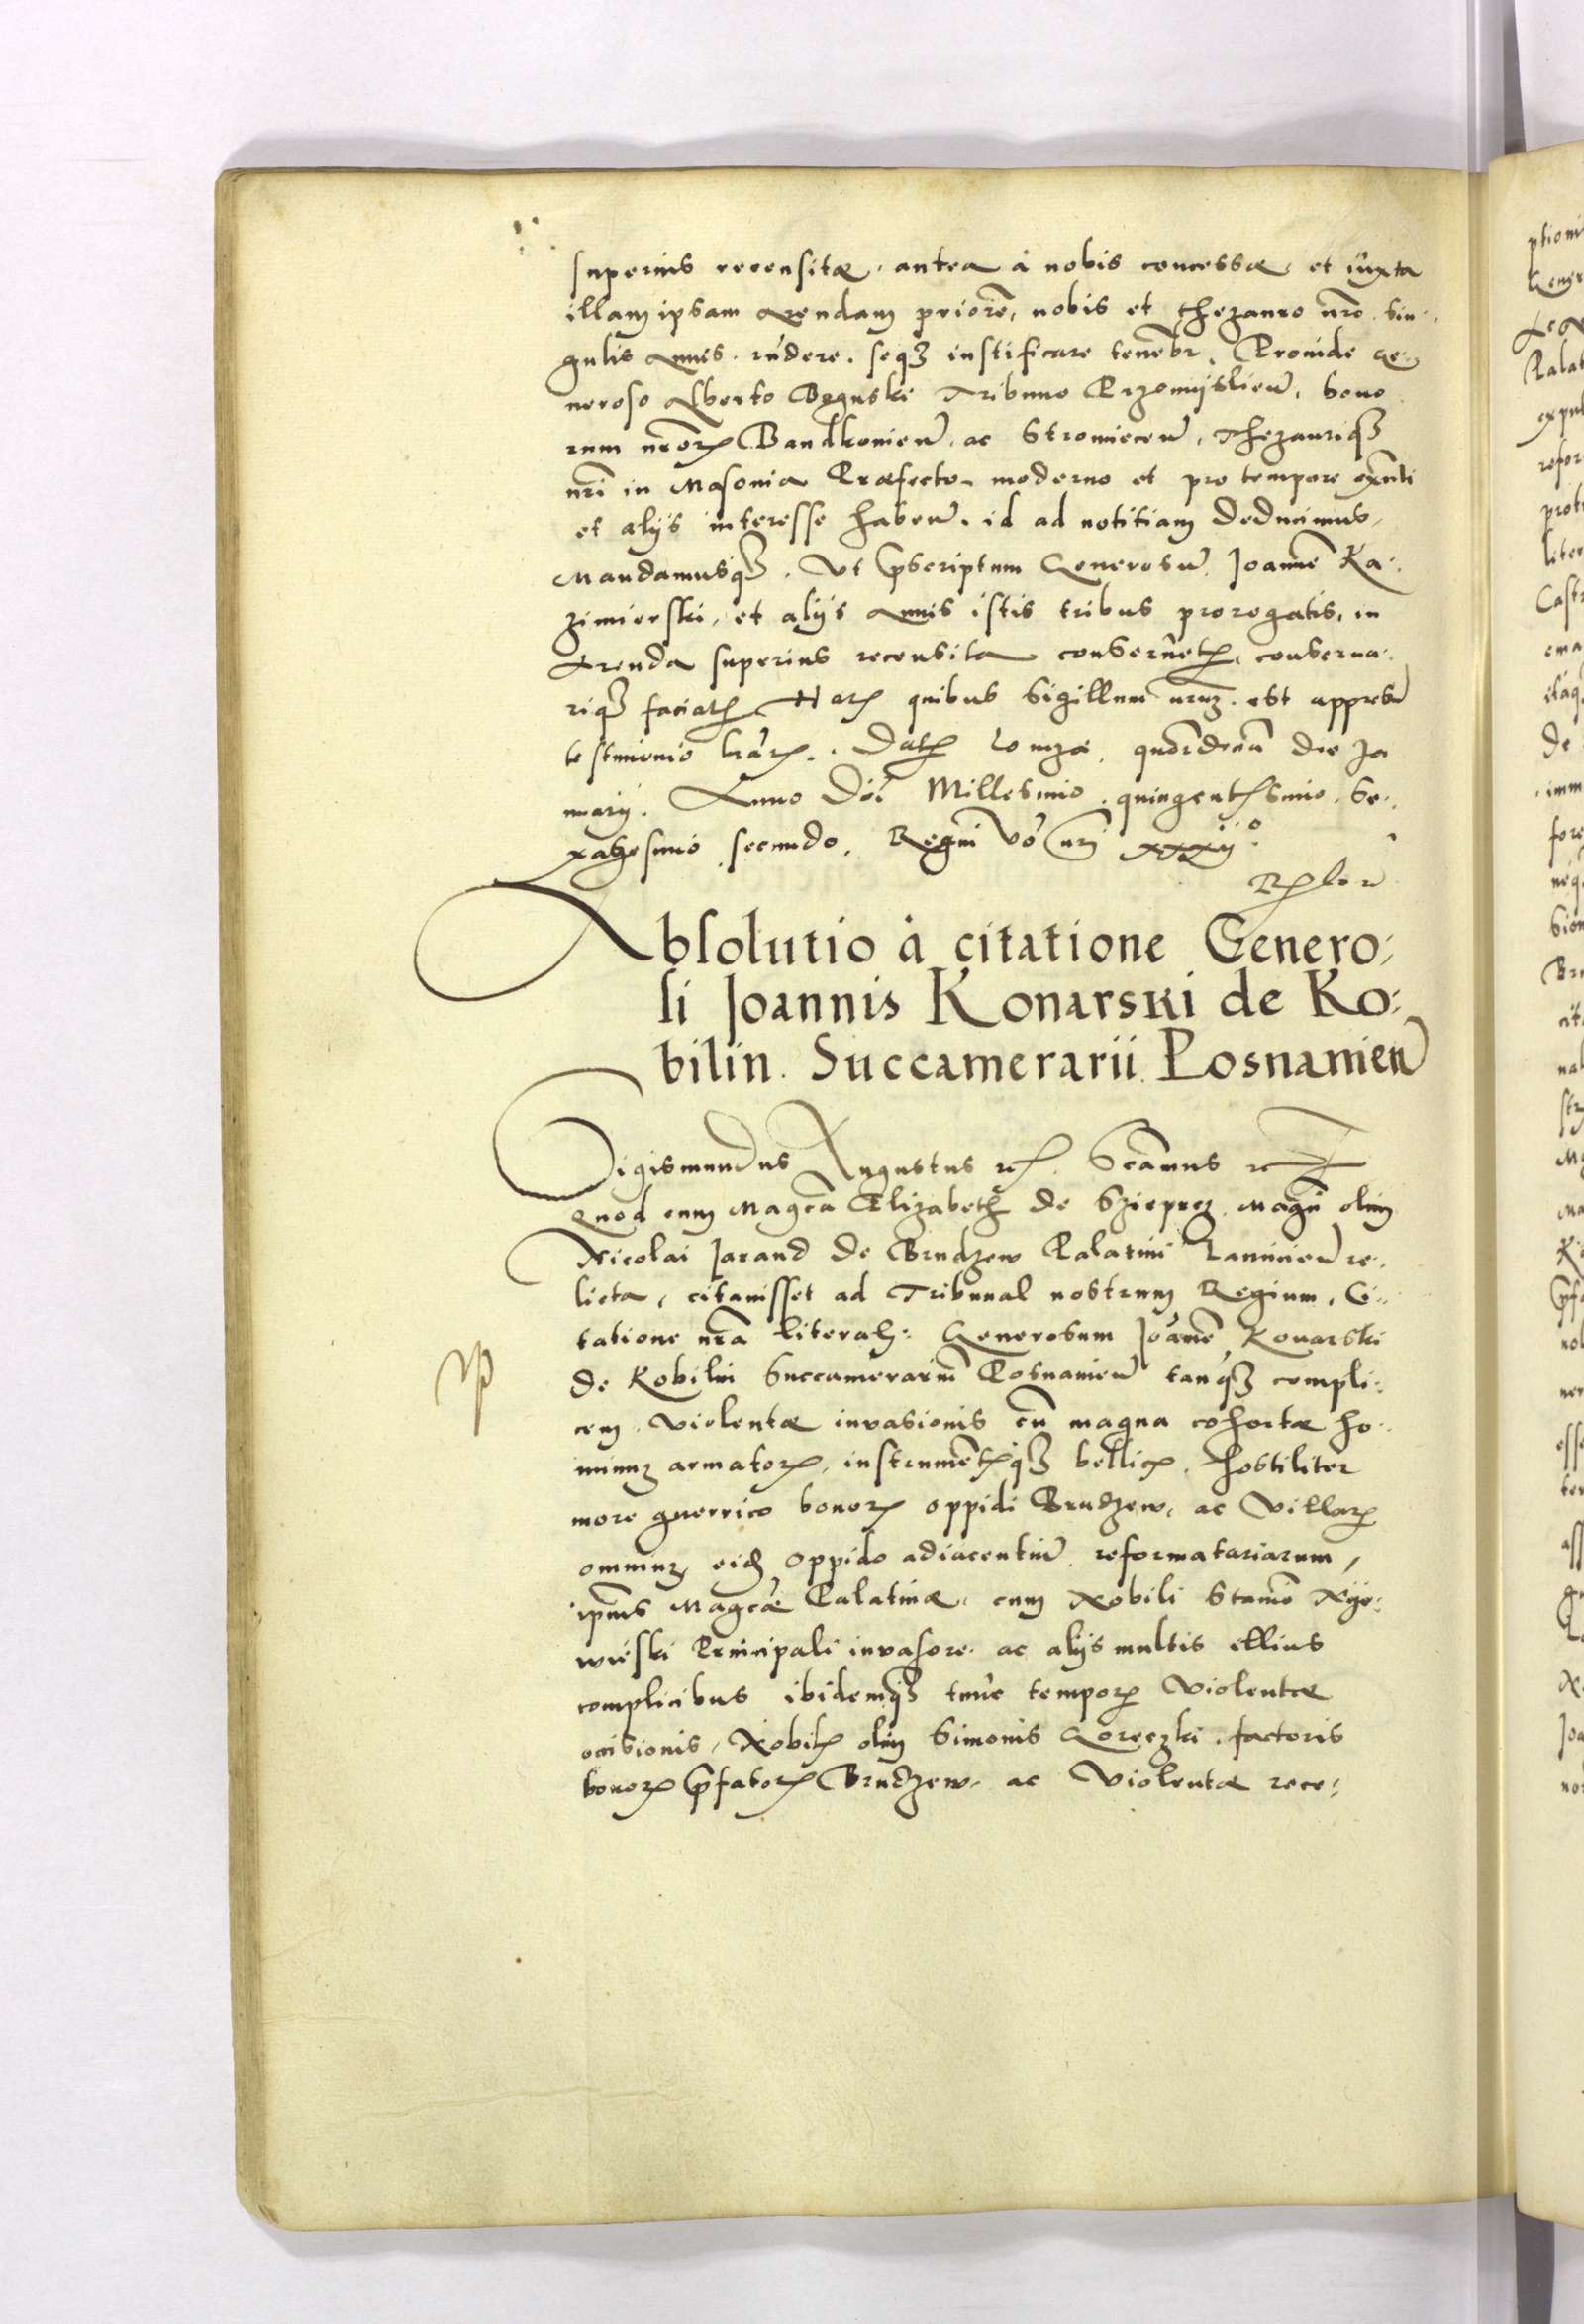 superius recensitæ, antea à nobis concessæ, et iuxta
illam ipsam arendam priorē, nobis et thezauro nr̄o sin⸗
gulis annis rñdere seqꝫ iustificare tenebr̄. Proinde Ge⸗
neroso Alberto Boguski Tribuno Przemyslien̄, bono
rum nr̄orꝫ Bandkovien̄ ac Stromiecen̄, Thezauriqꝫ
nr̄i in Masovia Præfecto moderno et pro tempore exn̄ti
et alijs interesse haben̄. id ad notitiam deducimus,
Mandamusqꝫ. Vt p̄scriptum Generosū Joannē Ka⸗
zimierski, et alijs annis istis tribus prorogatis, in
Arenda superius recensita conservetꝭ, conserva⸗
riqꝫ faciatꝭ. Harꝫ quibus Sigillum nr̄um est appressū
testimonio lr̄arꝫ. Datꝭ Lomzæ, die Ja
nuarij. Anno Dn̄i Millesimo quingentesimo Se⸗
xagesimo secundo, Regni vō nr̄i xxxij°
Absolutio à citatione Genero⸗
si Joannis Konarski de Ko⸗
bilin Succamerarii Posnanien̄
Sigismundus Augustus ꝛc. Significamus ꝛc
Quod cum Magc̄a Elizabeth de Szieprcz Magn̄i olim
Nicolai Jarand de Brudzew Palatini Lancicien̄ re⸗
licta, citavisset ad Tribunal nostrum Regium, Ci⸗
tatione nr̄a literali: Generosum Joānē Konarski
de Kobilin Succamerariū Posnanien̄ tanqꝫ compli⸗
cem violentæ invasionis cū magna cohortæ ho⸗
minum armatorꝫ, instrumētisqꝫ bellicꝭ, hostiliter
more guerrico bonorꝫ oppidi Brudzew, ac Villarꝫ
omnium eidē oppido adiacentiū reformatariarum,
ipsius Magc̄æ Palatinæ, cum Nobili Stan̄o Nye⸗
wieski Principali invasore ac alijs multis illius
complicibus ibidemqꝫ tunc temporꝭ Violentæ
occisionis, Nobilꝭ olim Simonis Goreczki, factoris
bonorꝫ p̄fatorꝫ Brudzew, ac Violentæ rece⸗